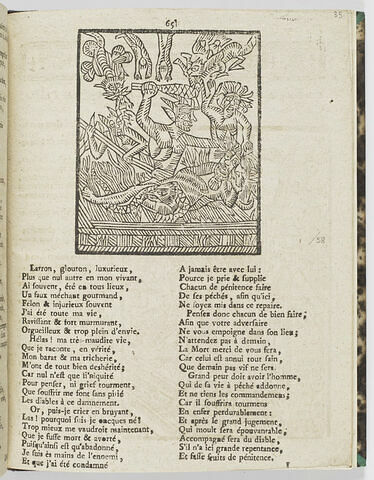 651
35
Larron, glouton, luxurieux,
Plus que nul autre en mon vivant,
Ai souvent, été en tous lieux,
Un faux méchant gourmand,
Félon & injurieux souvent
J'ai été toute ma vie,
Ravissant & fort murmurant,
Orgueilleux & trop plein d'envie.
Hélas! ma très-maudite vie,
Que je raconte, en vérité
Mon barat & ma tricherie,
M'ont de tout bien deshérité;
Car nul n'est que d'iniquité
Pour penser, ni grief tourment,
Que souffrir me font sans pitié
Les diables à ce damnement.
Or, puis-je crier en bruyant,
Las! pourquoi suis-je oncques né!
Trop mieux me vaudroit maintenant,
Que je fusse mort & avorté,
Puisqu'ainsi est qu'abandonné,
Je suis ès mains de l'ennemi,
Et que j'ai été condamné
A jamais être avec lui:
Pource je prie & supplie
Chacun de pénitence faire
De ses péchés, afin qu'ici,
Ne soyez mis dans ce repaire.
Pensez donc chacun de bien faire;
Afin que votre adversaire
Ne vous empoigne dans son lieu;
N'attendez pas à demain,
La Mort merci de vous sera,
Car celui est annui tout sain,
Que demain pas vif ne sera.
Grand peur doit avoir l'homme,
Qui de sa vie à péché addonne,
Et ne tient les commandemens;
Car il souffrira tourmens
En enfer perdurablement:
Et après le grand jugement,
Qui moult sera épouvantable,
Accompagné sera du diable,
S'il n'a ici grande repentance,
Et fasse fruits de pénitence.
1 / 58